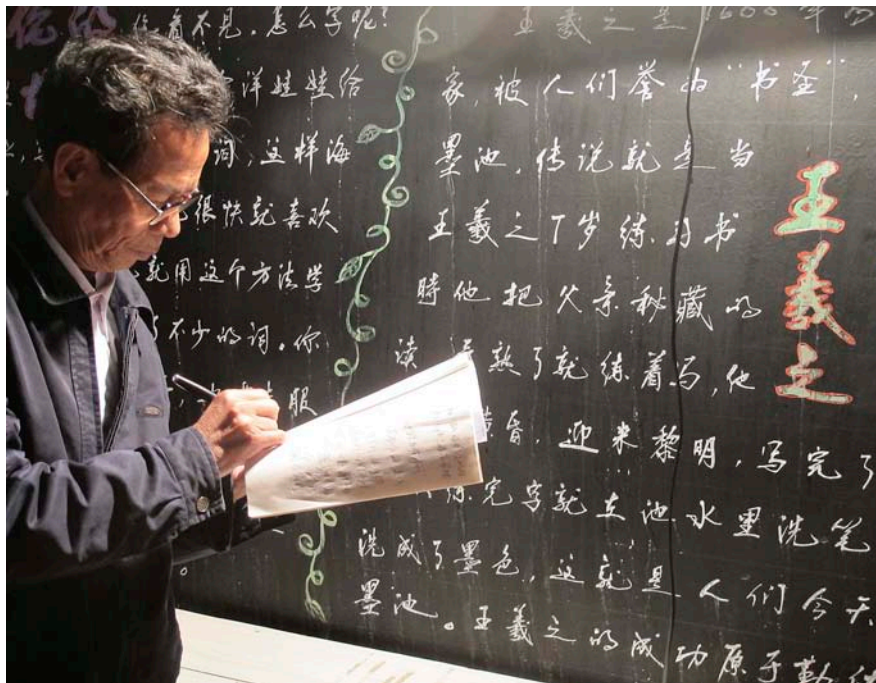 你看不见,怎么学呢?
洋娃娃给
词,这样海
很快就喜欢
就用这个方法学
不少的词。你
服
。
王羲之
王羲之是1600年
家,被人们誉为“书圣”,
墨池,传说就是当
王羲之7岁练习书
时他把父亲秘藏的
读 熟了就练着写,他
黄昏,迎来黎明,写完了
练完字就在池水里洗笔
洗成了墨色,这就是人们今天
墨池。王羲之的成功原于勤